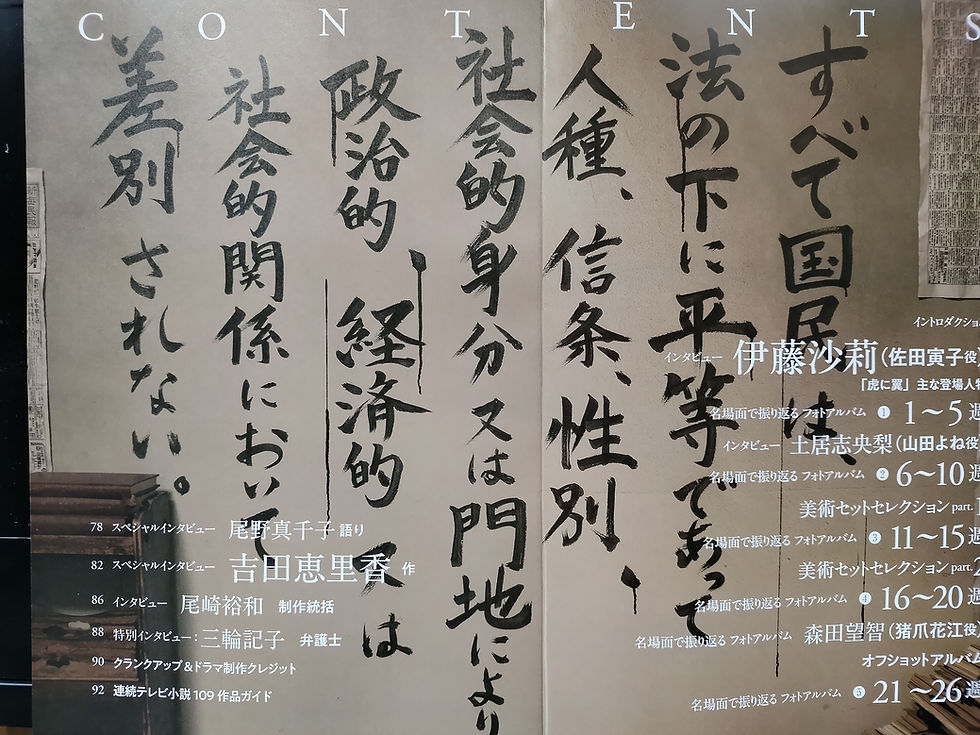 CONTENTS
すべて国民は、
法の下に平等であって
人種、信条、性別、
社会的身分又は門地により
政治的 経済的 又は
社会的関係において
差別 されない。
イントロダクショ
インタビュー 伊藤沙莉(佐田寅子役)
「虎に翼」主な登場人物
名場面で振り返るフォトアルバム ❶ 1〜5週
インタビュー 土居志央梨(山田よね役
名場面で振り返るフォトアルバム ❷ 6〜10週
美術セットセレクション part.
名場面で振り返るフォトアルバム ❸ 11〜15週
美術セットセレクション part.2
名場面で振り返るフォトアルバム ❹ 16〜20週
森田望智(猪爪花江役)
オフショットアルバム
名場面で振り返るフォトアルバム ❺ 21〜26週
78 スペシャルインタビュー 尾野真千子 語り
82 スペシャルインタビュー 吉田恵里香 作
86 インタビュー 尾崎裕和 制作統括
88 特別インタビュー:三輪記子 弁護士
90 クランクアップ&ドラマ制作クレジット
92 連続テレビ小説109作品ガイド